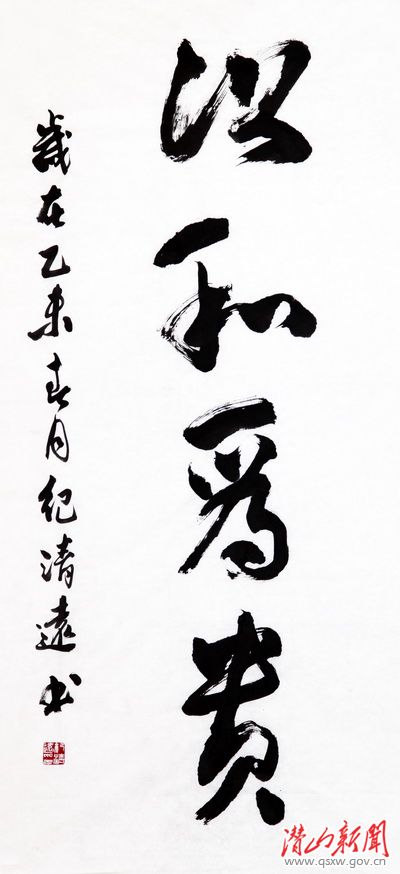 以和爲贵
歲在乙未春月纪清遠书
潜山新聞
www.qsxw.gov.cn